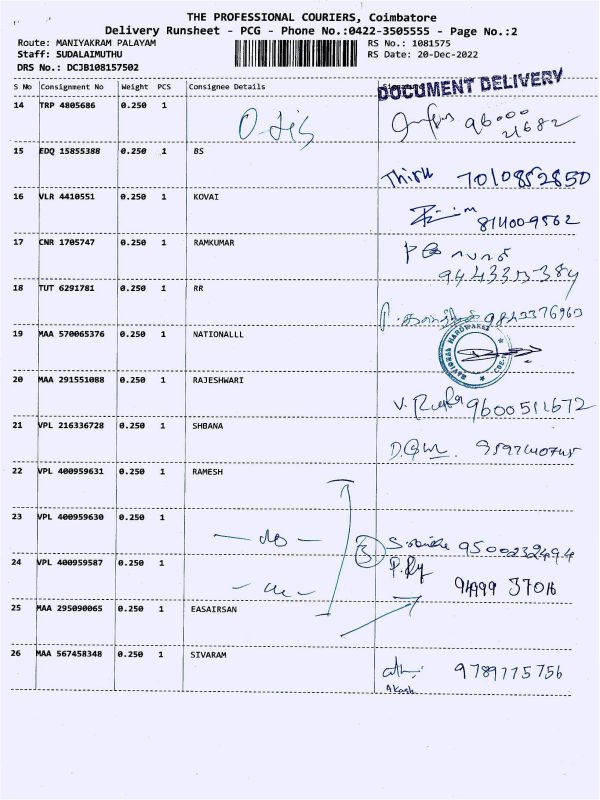 THE PROFESSIONAL COURIERS, Coimbatore
Delivery Runsheet - PCG - Phone No.:0422-3505555 - Page No.:2
Route: MANIYAKRAM PALAYAM RS No.: 1081575
Staff: SUDALAIMUTHU RS Date: 20-Dec-2022
DRS No.: DCJB108157502
S No Consignment No Weight PCS Consignee Details
DOCUMENT DELIVERY
14 TRP 4805686 0.250 1 96000
21682
15 EDQ 15855388 0.250 1 BS
Thiru 7010852850
16 VLR 4410551 0.250 1 KOVAI
17 CNR 1705747 0.250 1 RAMKUMAR
18 TUT 6291781 0.250 1 RR
9843376963
19 MAA 570065376 0.250 1 NATIONALLL
NATIONAL HARDWARES
20 MAA 291551088 0.250 1 RAJESHWARI
9600511672
21 VPL 216336728 0.250 1 SHBANA
22 VPL 400959631 0.250 1 RAMESH
23 VPL 400959630 0.250 1
3 9500232494
24 VPL 400959587 0.250 1
37016
25 MAA 295090065 0.250 1 EASAIRSAN
26 MAA 567458348 0.250 1 SIVARAM
9789775756
Akash